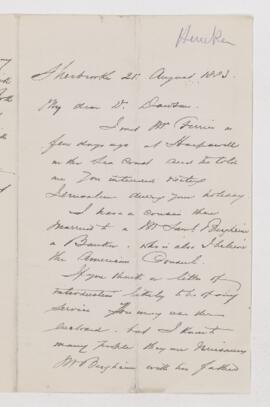 Sherbrooke 21. August 1883.
My dear Dr. Dawson
I met Mr Ferrier a
few days ago at Harpswell
on the Sea Coast and he told
me you intended visiting
Jerusalem during your holiday
I have a cousin there
married to a Mr Bergheim
a Banker, who is also I believe
the American Consul.
If you think a letter of
introduction likely to be of any
service you may use the
husband. but I know
many people they are
Mr Bergheim with his father